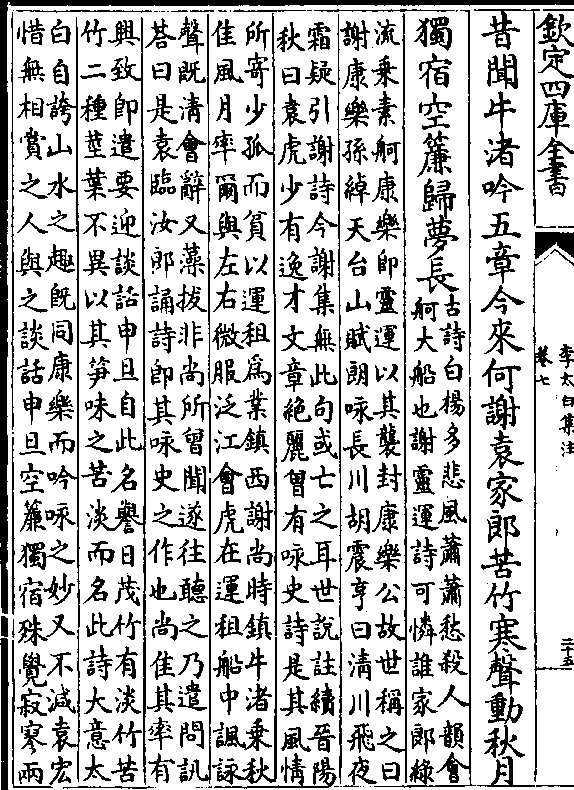 欽定四庫全書
李太白集注
卷七
二十五
昔聞牛渚吟五章今來何謝袁家郎苦竹寒聲動秋月
獨宿空簾歸夢長
古詩白楊多悲風蕭蕭愁殺人韻會
舸大船也謝靈運詩可憐誰家郎綠
流乗素舸康樂即靈運以其襲封康樂公故世稱之曰
謝康樂孫綽天台山賦朗咏長川胡震亨曰清川飛夜
霜疑引謝詩今謝集無此句或亡之耳世說註續晉陽
秋曰袁虎少有逸才文章絶麗曽有咏史詩是其風情
所寄少孤而貧以運租爲業鎮西謝尚時鎮牛渚乗秋
佳風月率爾與左右微服泛江會虎在運租船中諷詠
聲既清會辭又藻拔非尚所曾聞遂往聽之乃遣問訊
荅曰是袁臨汝郎誦詩即其咏史之作也尚佳其率有
興致即遣要迎談話申旦自此名譽日茂竹有淡竹苦
竹二種莖葉不異以其笋味之苦淡而名此詩大意太
白自誇山水之趣既同康樂而吟咏之妙又不減袁宏
惜無相賞之人與之談話申旦空簾獨宿殊覺寂寥兩